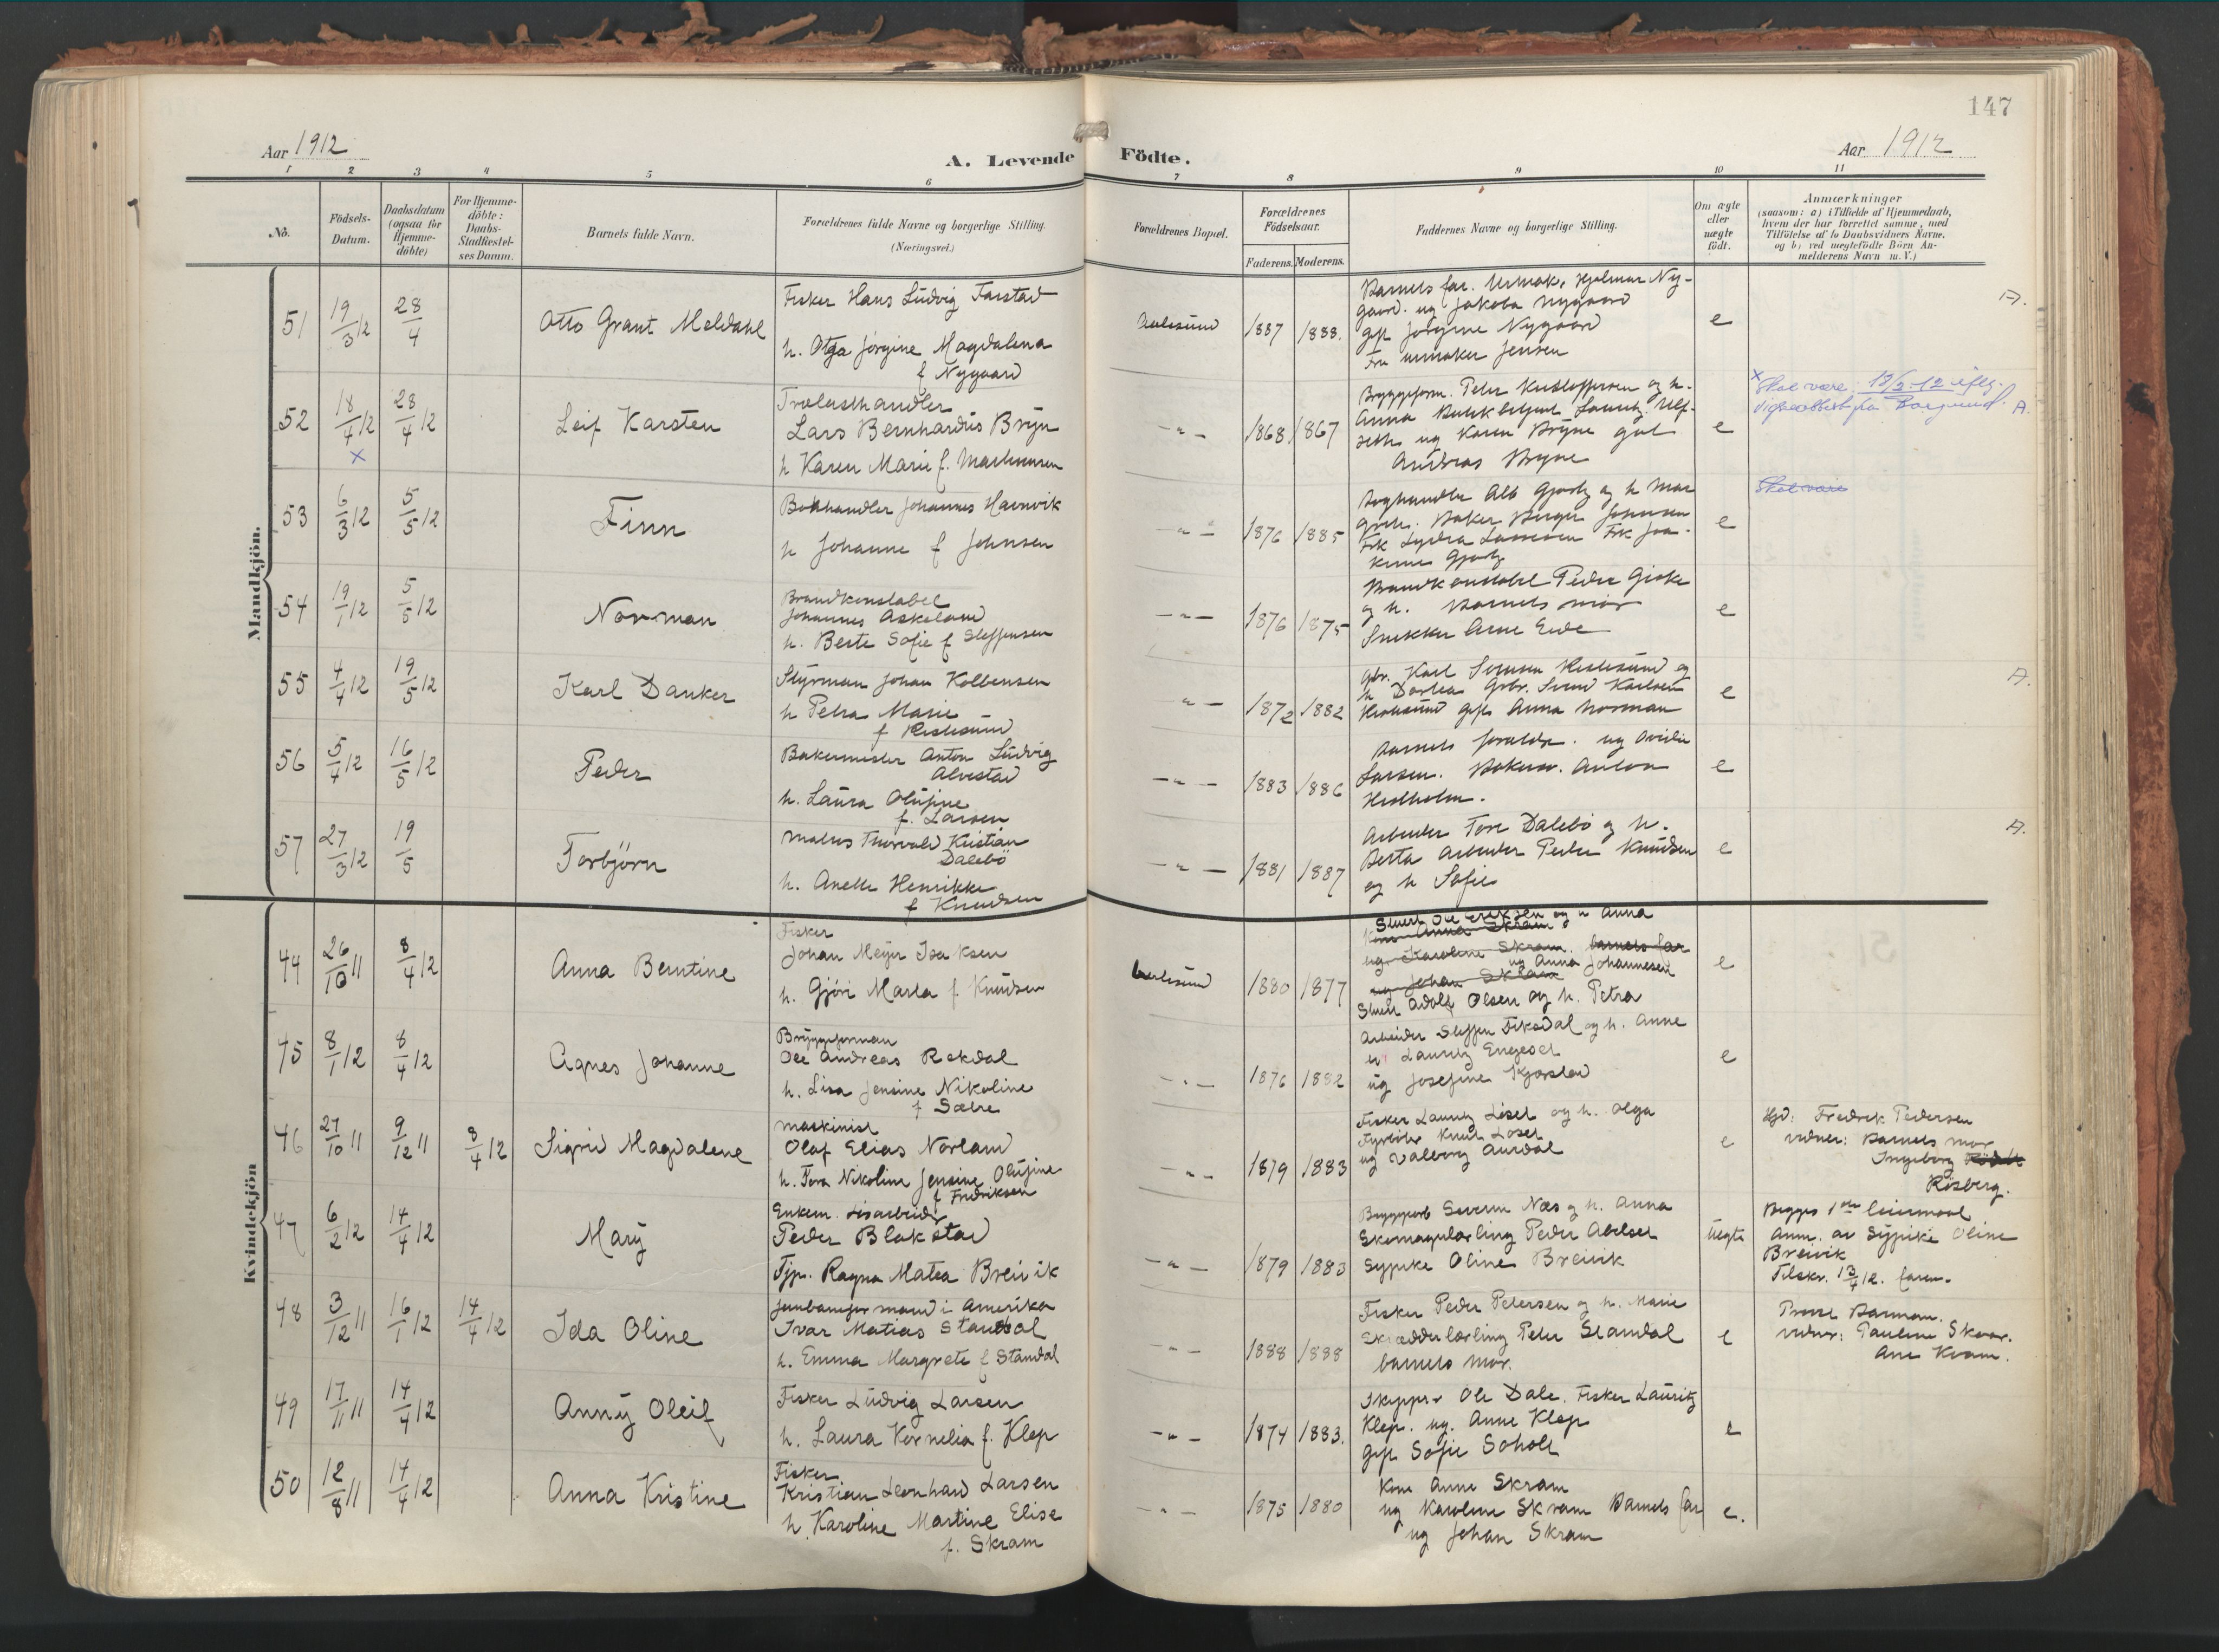 147
Aar 1912
A. Levende Födte.
Aar 1912
1 2 3 4 5 6 7 8 9 10 11
No.
Födsels-Datum.
Daabsdatum (ogsaa for Hjemme-döbte)
For Hjemme-döbte: Daabs-Stadfæstel-ses Datum.
Barnets fulde Navn.
Forældrenes fulde Navne og borgerlige Stilling.
(Næringsvei.)
Forældrenes Bopæl.
Forældrenes Födselsaar.
Faderens. Moderens.
Faddernes Navne og borgerlige Stilling.
Om ægte eller uægte födt.
Anmærkninger
(saasom: a) i Tilfælde af Hjemmedaab,
hvem der har forrettet samme, med
Tilföielse af to Daabsvidners Navne,
og b) ved uægtefödte Börn An-
melderens Navn m. V.)
Mandkjön.
51 19/3 12 28/4
Otto Grant Meldahl
Fisker Hans Ludvig Farstad
h. Olga Jörgine Magdalena
f Nygaard
Aalesund 1887 1888.
Barnets far. Urmak. Hjalmar Ny-
gaard. ug Jakoba Nygaard
gift Jörgine Nygaard
Fru urmaker Jensen
e
A.
52 18/4 12 x 28/4 12
Leif Karsten
Trælasthandler
Lars Bernhardus Bryn
h Karen Marie f. Martinusen
- " - 1868 1867
Bryggeform. Peter Kristoffersen og h.
Anna
ug Karen Bryne gut
Andreas Bryne
e
x Skal være 18/3-12 ifölg.
vigselattest fra Borgund. A.
53 6/3 12 5/5 12
Finn
Bokhandler Johannes Havnvik
h Johanne f Johnsen
- " - 1876 1885
Baker Birger Johnsen
Frk Lydia
e
Skal være
54 19/1 12 5/5 12
Norman
Brandkonstabel
Johannes Askeland
h. Berte Sofie f Steffensen
- " - 1876 1875
Brandkonstabel Peder Giske
og h. Barnets mor
Snekker Arne Eide
e
55 4/4 12 19/5 12
Karl Danker
Styrman Johan Kolbensen
h Petra Marie
f Ristesund
- " - 1872 1882
gbr. Karl Ristesund og
h Dortea Gbr. Karlsen
Ristesund gift Anna Norman
e
A.
56 5/4 12 16/5 12
Peder
Bakermester Anton Ludvig
Alvestad
h. Laura Olufine
f. Larsen
- " - 1883 1886
Barnets foreldr. ug
Larsen. Bakersv. Anton
Hedholm.
e
57 27/3 12 19/5
Torbjörn
Matros Thorvald Kristian
Dalebö
h. Anette Henrikke
f Knudsen
- " - 1881 1887
Arbeider Tore Dalebö og h.
Berta Arbeider Peder Knudsen
og h Sofie
e
A.
Kvindekjön
44 26/10 11 8/4 12
Anna Berntine
Fisker
Johan Meyer Isaksen
h. Gjöri Marta f Knudsen
Aalesund 1880 1877
Stuert Ole Eriksen og h Anna
Kone Anna Skram
ug Karoline Skram. barnets far
ug Anna Johannesen
ug Johan Skram
Stuert Adolf Olsen og h. Petra
e
45 8/1 12 8/4 12
Agnes Johanne
Bryggeforman
Ole Andreas Rekdal
h. Lisa Jensine Nikoline
f Sætre
- " - 1876 1882
Arbeider Steffen Fiksdal og h. Anne
Lauritz Engeset
ug Josefine Kjörstad
e
46 27/10 11 9/12 11 8/4 12
Sigrid Magdalene
Maskinist
Olaf Elias Norland
h. Tora Nikoline Jensine Olufine
f Fredriksen
- " - 1879 1883
Fisker Lauritz Löset og h. Olga
Fyrböter Knut Löset
ug Valborg Aurdal
e
Hjd: Fredrik Pedersen
vidner: Barnets mor
Ingeborg
Risberg.
47 6/2 12 14/4 12
Mary
Enkem. Lösarbeider
Peder Blakstad
Tjp. Ragna Matea Breivik
- " - 1879 1883
Bryggearb Severin Næs og h. Anna
Skomagerlærling Peder Abelset
Sypike Oline Breivik
uegte
Begges 1ste leiermaal
Anm. av Sypike Oline
Breivik
Tilskr. 13/4 12. faren.
48 3/12 11 16/1 12 14/4 12
Ida Oline
Jernbaneformand i Amerika
Ivar Matias Standal
h. Emma Margrete f Standal
- " - 1888 1888
Fisker Peder Petersen og h. Marie
Skrædderlærling Peter Standal
barnets mor.
e
Prove Barman.
vidner: Pauline Skaar.
Ane Kvam.
49 17/11 11 14/4 12
Anny Oleif
Fisker Ludvig Larsen
h. Laura Kornelia f. Klep
- " - 1874 1883.
Skipper Ole Dale. Fisker Lauritz
Klep. ug. Anne Klep
gift Sofie Soholt
e
50 12/8 11 14/4 12
Anna Kristine
Fisker
Kristian Leonhard Larsen
h. Karoline Martine Elise
f. Skram
- " - 1875 1880
Kone Anne Skram
ug Karoline Skram Barnets far
ug Johan Skram
e.